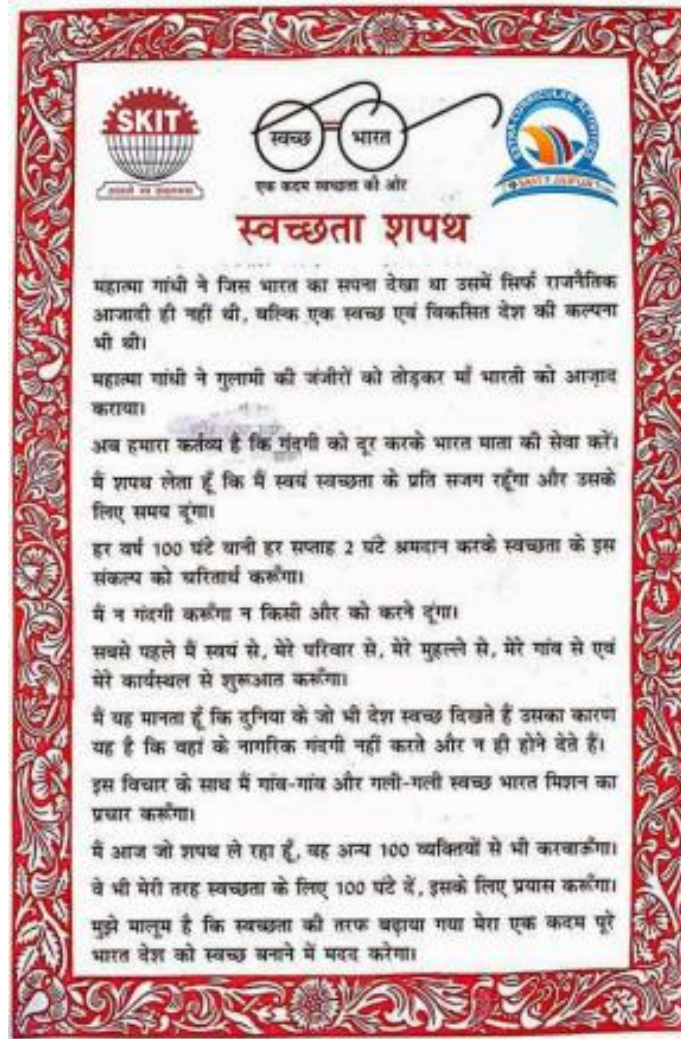 SKIT
स्वच्छ भारत
EXTRA CURRICULAR ACTIVITIES
एक कदम स्वच्छता की ओर
SKIT JAIPUR
स्वच्छता शपथ
महात्मा गांधी ने जिस भारत का सपना देखा था उसमें सिर्फ राजनैतिक
आजादी ही नहीं थी, बल्कि एक स्वच्छ एवं विकसित देश की कल्पना
भी थी।
महात्मा गांधी ने गुलामी की जंजीरों को तोड़कर माँ भारती को आज़ाद
कराया।
अब हमारा कर्तव्य है कि गंदगी को दूर करके भारत माता की सेवा करें।
मैं शपथ लेता हूँ कि मैं स्वयं स्वच्छता के प्रति सजग रहूँगा और उसके
लिए समय दूंगा।
हर वर्ष 100 घंटे यानी हर सप्ताह 2 घंटे श्रमदान करके स्वच्छता के इस
संकल्प को चरितार्थ करूँगा।
मैं न गंदगी करूँगा न किसी और को करने दूंगा।
सबसे पहले मैं स्वयं से, मेरे परिवार से, मेरे मुहल्ले से, मेरे गांव से एवं
मेरे कार्यस्थल से शुरूआत करूँगा।
मैं यह मानता हूँ कि दुनिया के जो भी देश स्वच्छ दिखते हैं उसका कारण
यह है कि वहां के नागरिक गंदगी नहीं करते और न ही होने देते हैं।
इस विचार के साथ मैं गांव-गांव और गली-गली स्वच्छ भारत मिशन का
प्रचार करूँगा।
मैं आज जो शपथ ले रहा हूँ, वह अन्य 100 व्यक्तियों से भी करवाऊँगा।
वे भी मेरी तरह स्वच्छता के लिए 100 घंटे दें, इसके लिए प्रयास करूँगा।
मुझे मालूम है कि स्वच्छता की तरफ बढ़ाया गया मेरा एक कदम पूरे
भारत देश को स्वच्छ बनाने में मदद करेगा।